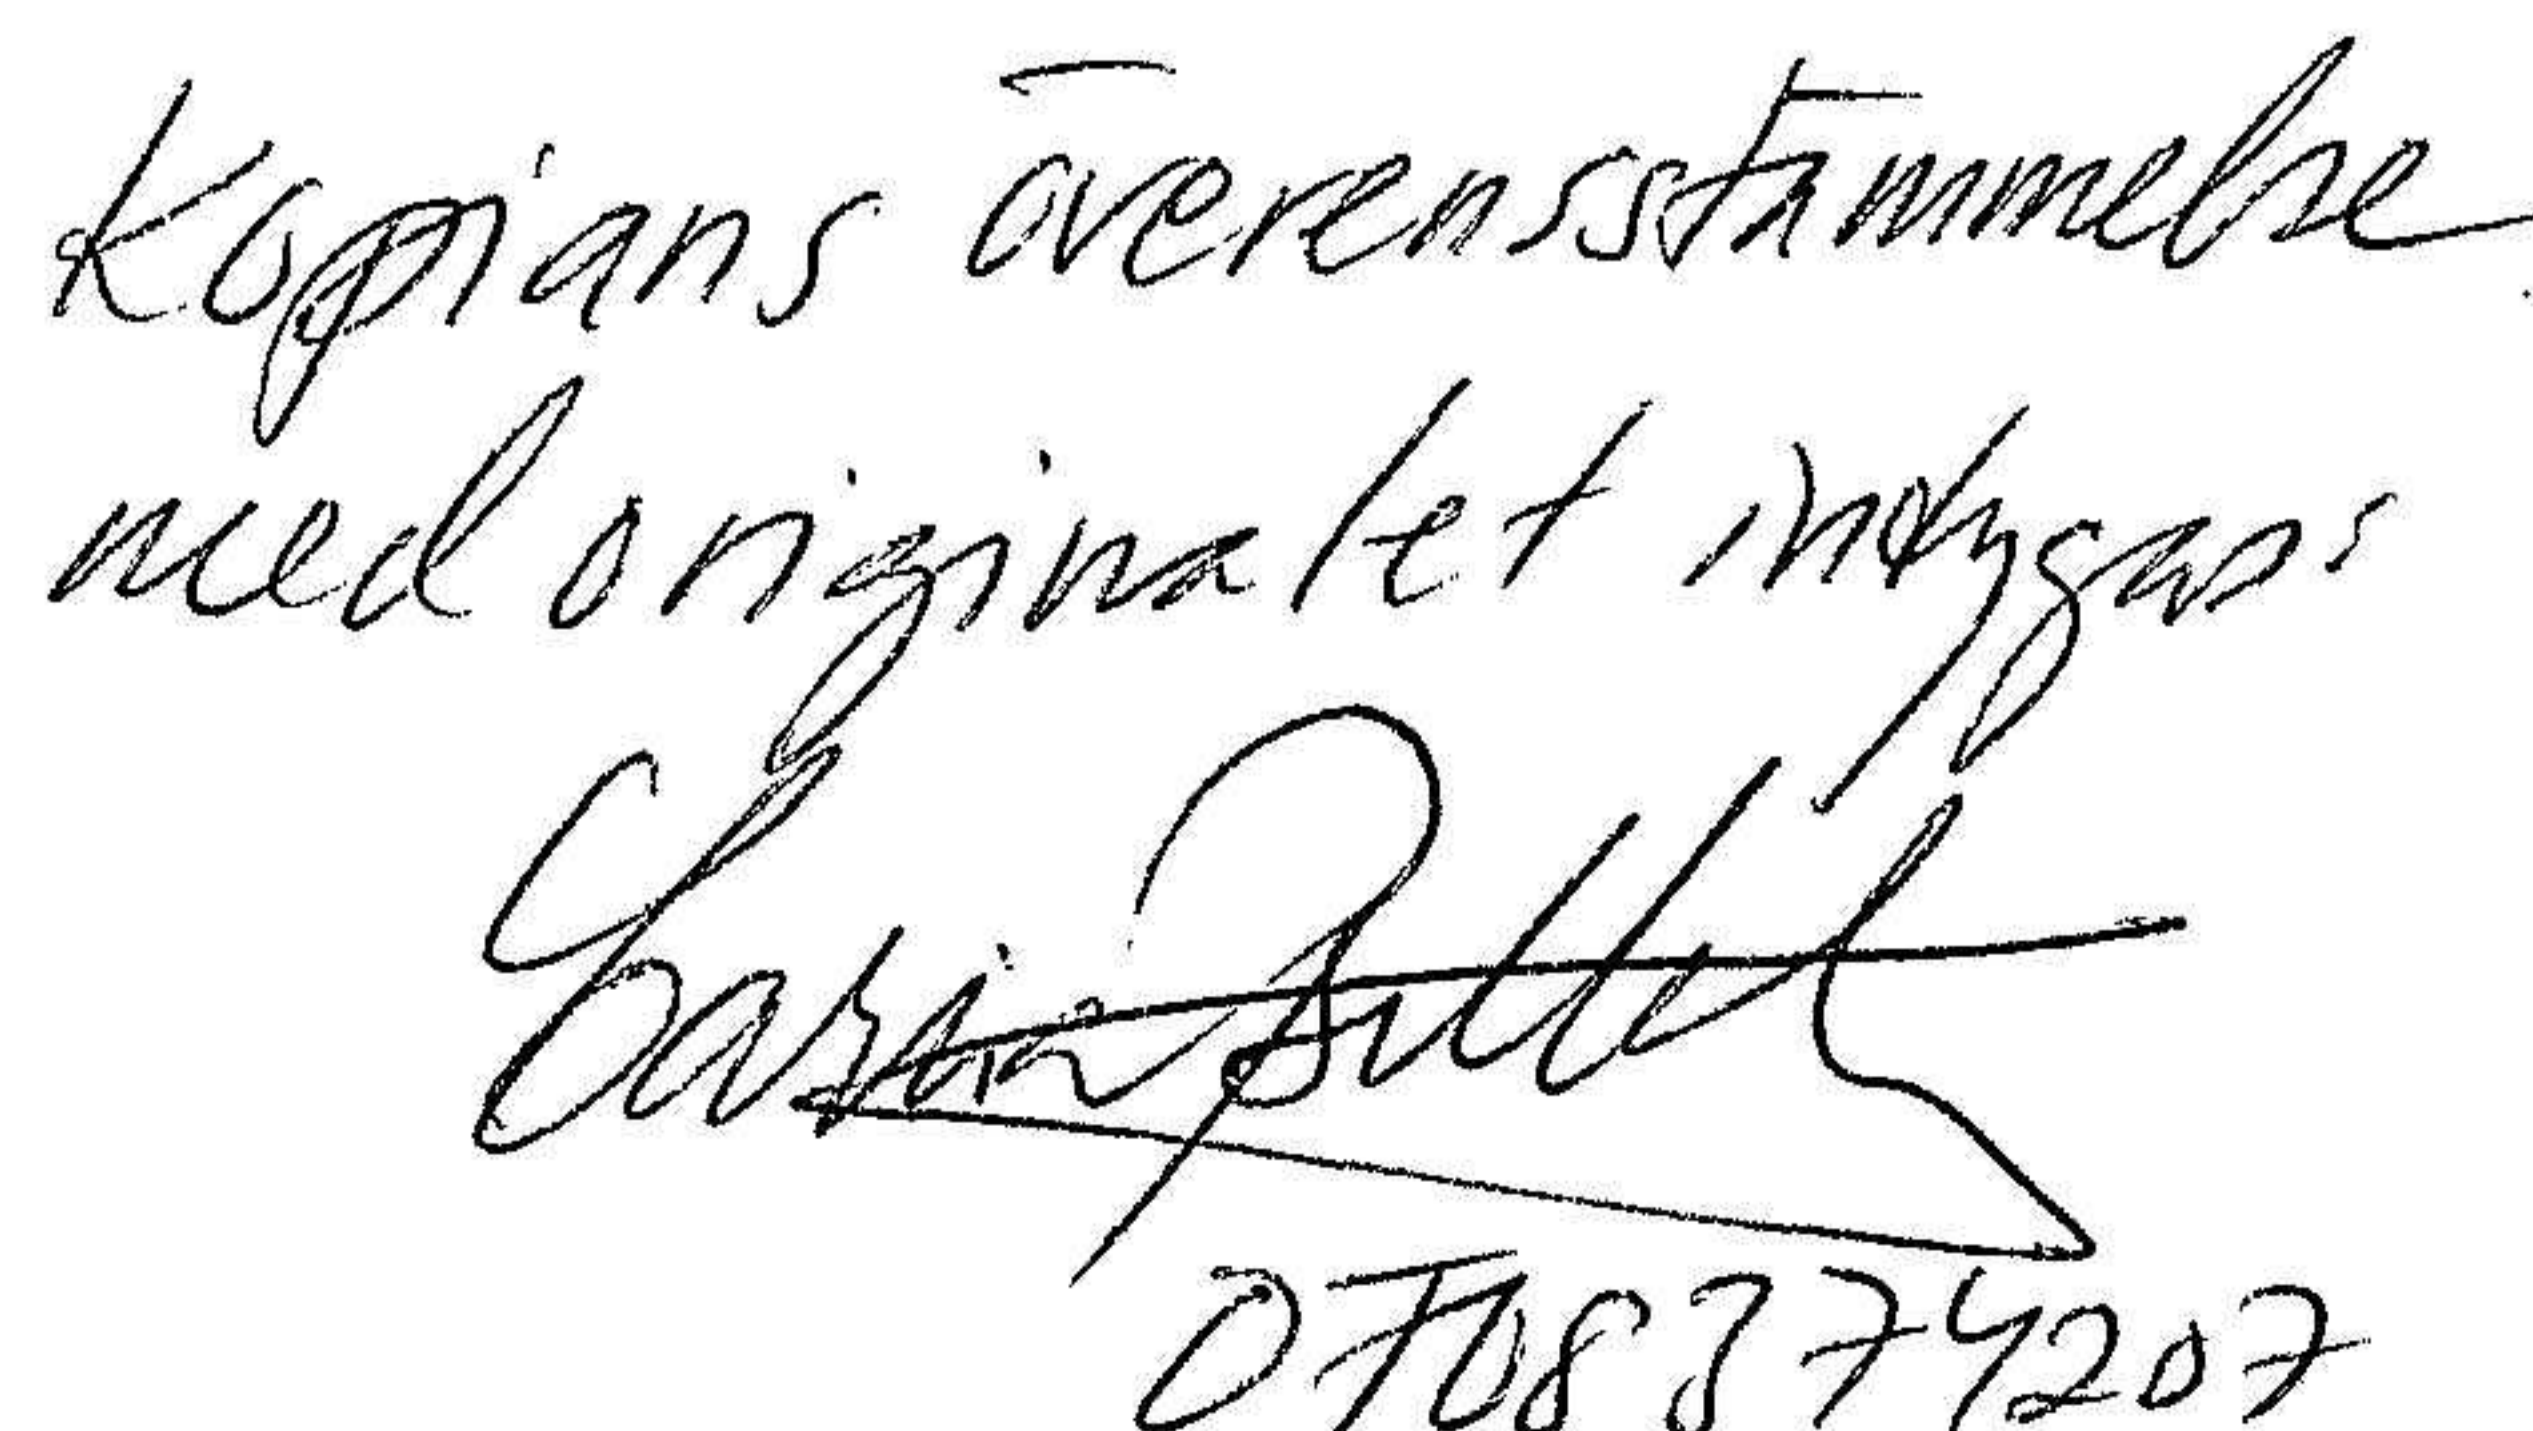 Kopians överensstämmelse
med originalet intygas
0708374207